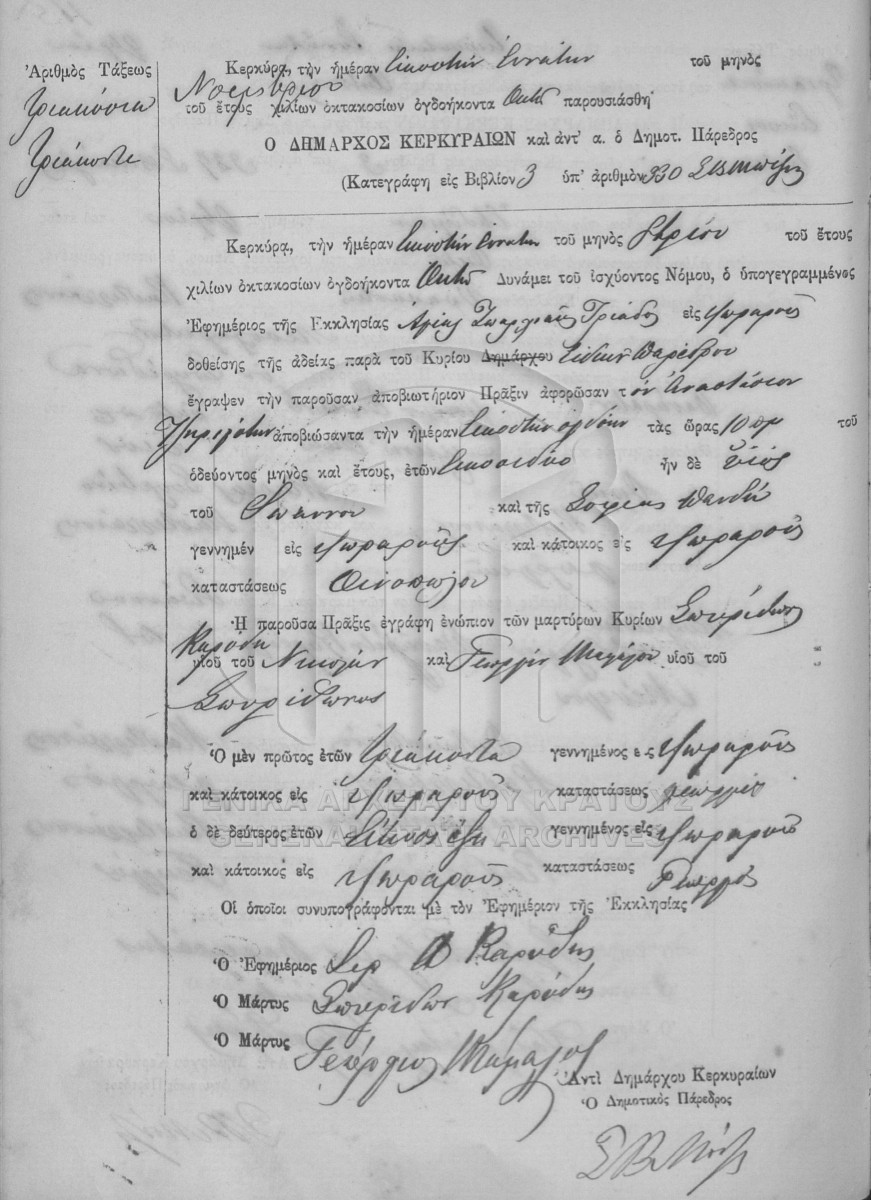 Ἀριθμὸς Τάξεως
Τριακόσια
Τριάκοντα
Κερκύρᾳ, τὴν ἡμέραν Εἰκοστὴν Ἐννάτην τοῦ μηνὸς
Νοεμβρίου
τοῦ ἔτους χιλίων ὀκτακοσίων ὀγδοήκοντα Ὀκτὼ παρουσιάσθη
Ο ΔΗΜΑΡΧΟΣ ΚΕΡΚΥΡΑΙΩΝ καὶ ἀντ' α. ὁ Δημοτ. Πάρεδρος
(Κατεγράφη εἰς Βιβλίον 3 ὑπ' ἀριθμὸν 330
Κερκύρᾳ, τὴν ἡμέραν Εἰκοστὴν Ἐννάτην τοῦ μηνὸς 9βρίου τοῦ ἔτους
χιλίων ὀκτακοσίων ὀγδοήκοντα Ὀκτὼ Δυνάμει τοῦ ἰσχύοντος Νόμου, ὁ ὑπογεγραμμένος
Ἐφημέριος τῆς Ἐκκλησίας Ἁγίας Τριάδος εἰς
δοθείσης τῆς ἀδείας παρὰ τοῦ Κυρίου Δημάρχου Εἰδικοῦ Παρέδρου
ἔγραψεν τὴν παροῦσαν ἀποβιωτήριον Πρᾶξιν ἀφορῶσαν τ ὸν Ἀναστάσιον
ἀποβιώσαντα τὴν ἡμέραν Εἰκοστὴν ὀγδόην τὰς ὥρας 10 πμ τοῦ
ὁδεύοντος μηνὸς καὶ ἔτους, ἐτῶν Εἰκοσιδύο ἦν δὲ υἱὸς
τοῦ Ἰωάννου καὶ τῆς Σοφίας
γεννημέν εἰς καὶ κάτοικος εἰς
καταστάσεως Οἰνοπώλου
Ἡ παροῦσα Πρᾶξις ἐγράφη ἐνώπιον τῶν μαρτύρων Κυρίων Σπυρίδων
Καρύδη
υἱοῦ τοῦ Νικολάου καὶ Γεωργίου Μαμάλου υἱοῦ τοῦ
Σπυρίδωνος
Ὁ μὲν πρῶτος ἐτῶν Τριάκοντα γεννημένος ε ς
καὶ κάτοικος εἰς καταστάσεως γεωργὸς
ὁ δὲ δεύτερος ἐτῶν Εἴκοσι ἕξη γεννημένος εἰς
καὶ κάτοικος εἰς καταστάσεως Γεωργὸς
Οἱ ὁποῖοι συνυπογράφονται μὲ τὸν Ἐφημέριον τῆς Ἐκκλησίας
Ὁ Ἐφημέριος Ἱερ Καρύδης
Ὁ Μάρτυς Σπυρίδων Καρύδης
Ὁ Μάρτυς Γεώργιος Μάμαλος
Ἀντὶ Δημάρχου Κερκυραίων
Ὁ Δημοτικὸς Πάρεδρος
ΓΕΝΙΚΑ ΑΡΧΕΙΑ ΤΟΥ ΚΡΑΤΟΥΣ
GENERAL STATE ARCHIVES